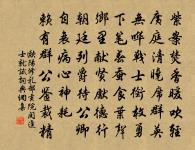 紫案焚香暖吹輕
廣庭清曉席群英
無嘩戰士銜枚勇
下筆春蠶食葉聲
鄉里獻賢先德行
朝廷列爵待公卿
自慚衰病心神耗
賴有群公鑒裁精
歐陽修禮部貢院閱進
士就試詞典網集